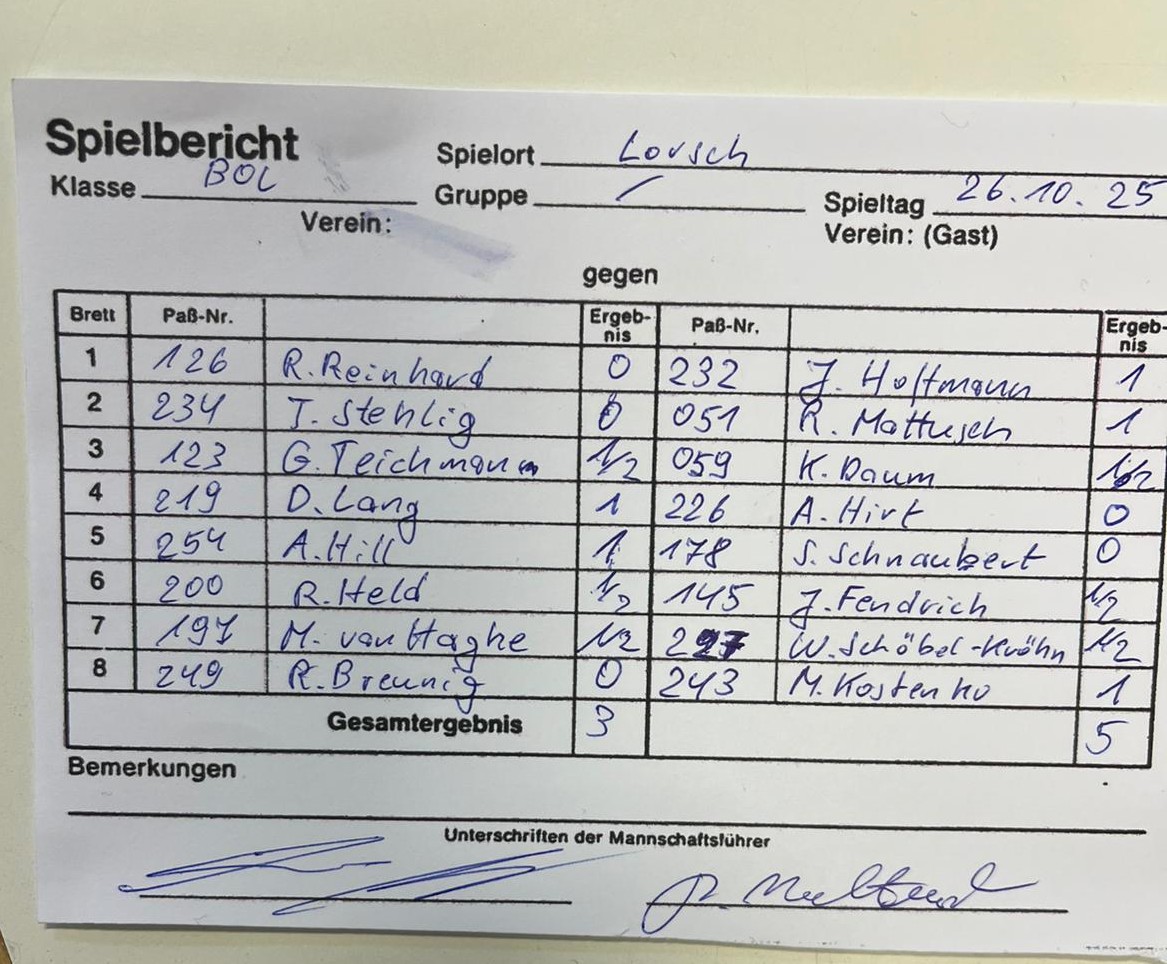 Spielbericht
Spielort Lorsch
Klasse BOL Gruppe / Spieltag 26.10.25
Verein: Verein: (Gast)
gegen
Brett Paß-Nr. Ergeb-nis Paß-Nr. Ergeb-nis
1 126 R. Reinhard 0 232 J. Hoffmann 1
2 234 T. Stehlig 0 051 R. Mattusch 1
3 123 G. Teichmann 1/2 059 K. Daum 1/2
4 219 D. Lang 1 226 A. Hirt 0
5 254 A. Hill 1 178 S. Schnaubert 0
6 200 R. Held 1/2 145 J. Fendrich 1/2
7 197 M. van Haghe 1/2 227 W. Schöbel-Kröhn 1/2
8 249 R. Breunig 0 243 M. Kostenko 1
Gesamtergebnis 3 5
Bemerkungen
Unterschriften der Mannschaftsführer